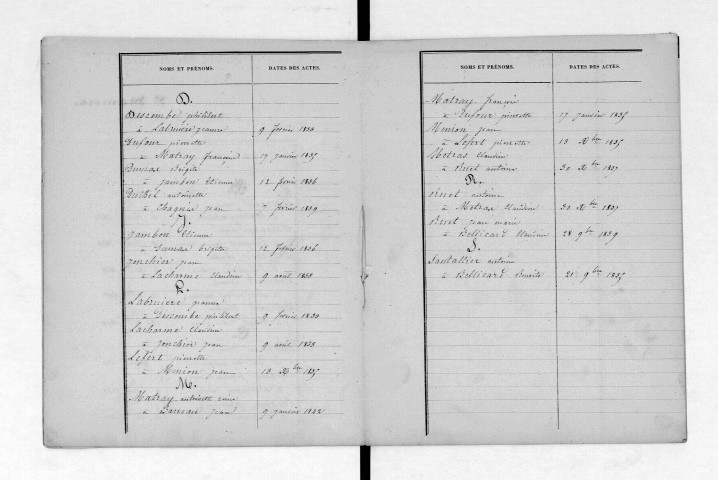 NOMS ET PRÉNOMS. DATES DES ACTES.
D.
Descombe philibert
à Labruiere jeanne 9 février 1833
Dufour pierrette
à Matray françois 17 janvier 1835
Dumas Brigite
à jambon Etienne 12 février 1836
Duthel antoinette
à Chagnie jean 7 février 1839
J.
Jambon Etienne
à Dumas brigite 12 février 1836
Jonchier jean
à Lacharme Claudine 9 août 1838
L.
Labruiere jeanne
à Descombe philibert 9 février 1833
Lacharme Claudine
à Jonchier jean 9 août 1838
Lefort pierrette
à Minion jean 13 Xbre 1835
M.
Matray antoinette
à jean 9 janvier 1832
NOMS ET PRÉNOMS. DATES DES ACTES.
Matray françois
à Dufour pierrette 17 janvier 1835
Minion jean
à Lefort pierrette 13 Xbre 1835
Metras Claudine
à antoine 30 Xbre 1837
R.
antoine
à Metras Claudine 30 Xbre 1837
jean marie
à Bellicard Claudine 28 9bre 1839
S.
Santallier antoine
à Bellicard Benoite 21 9bre 1835